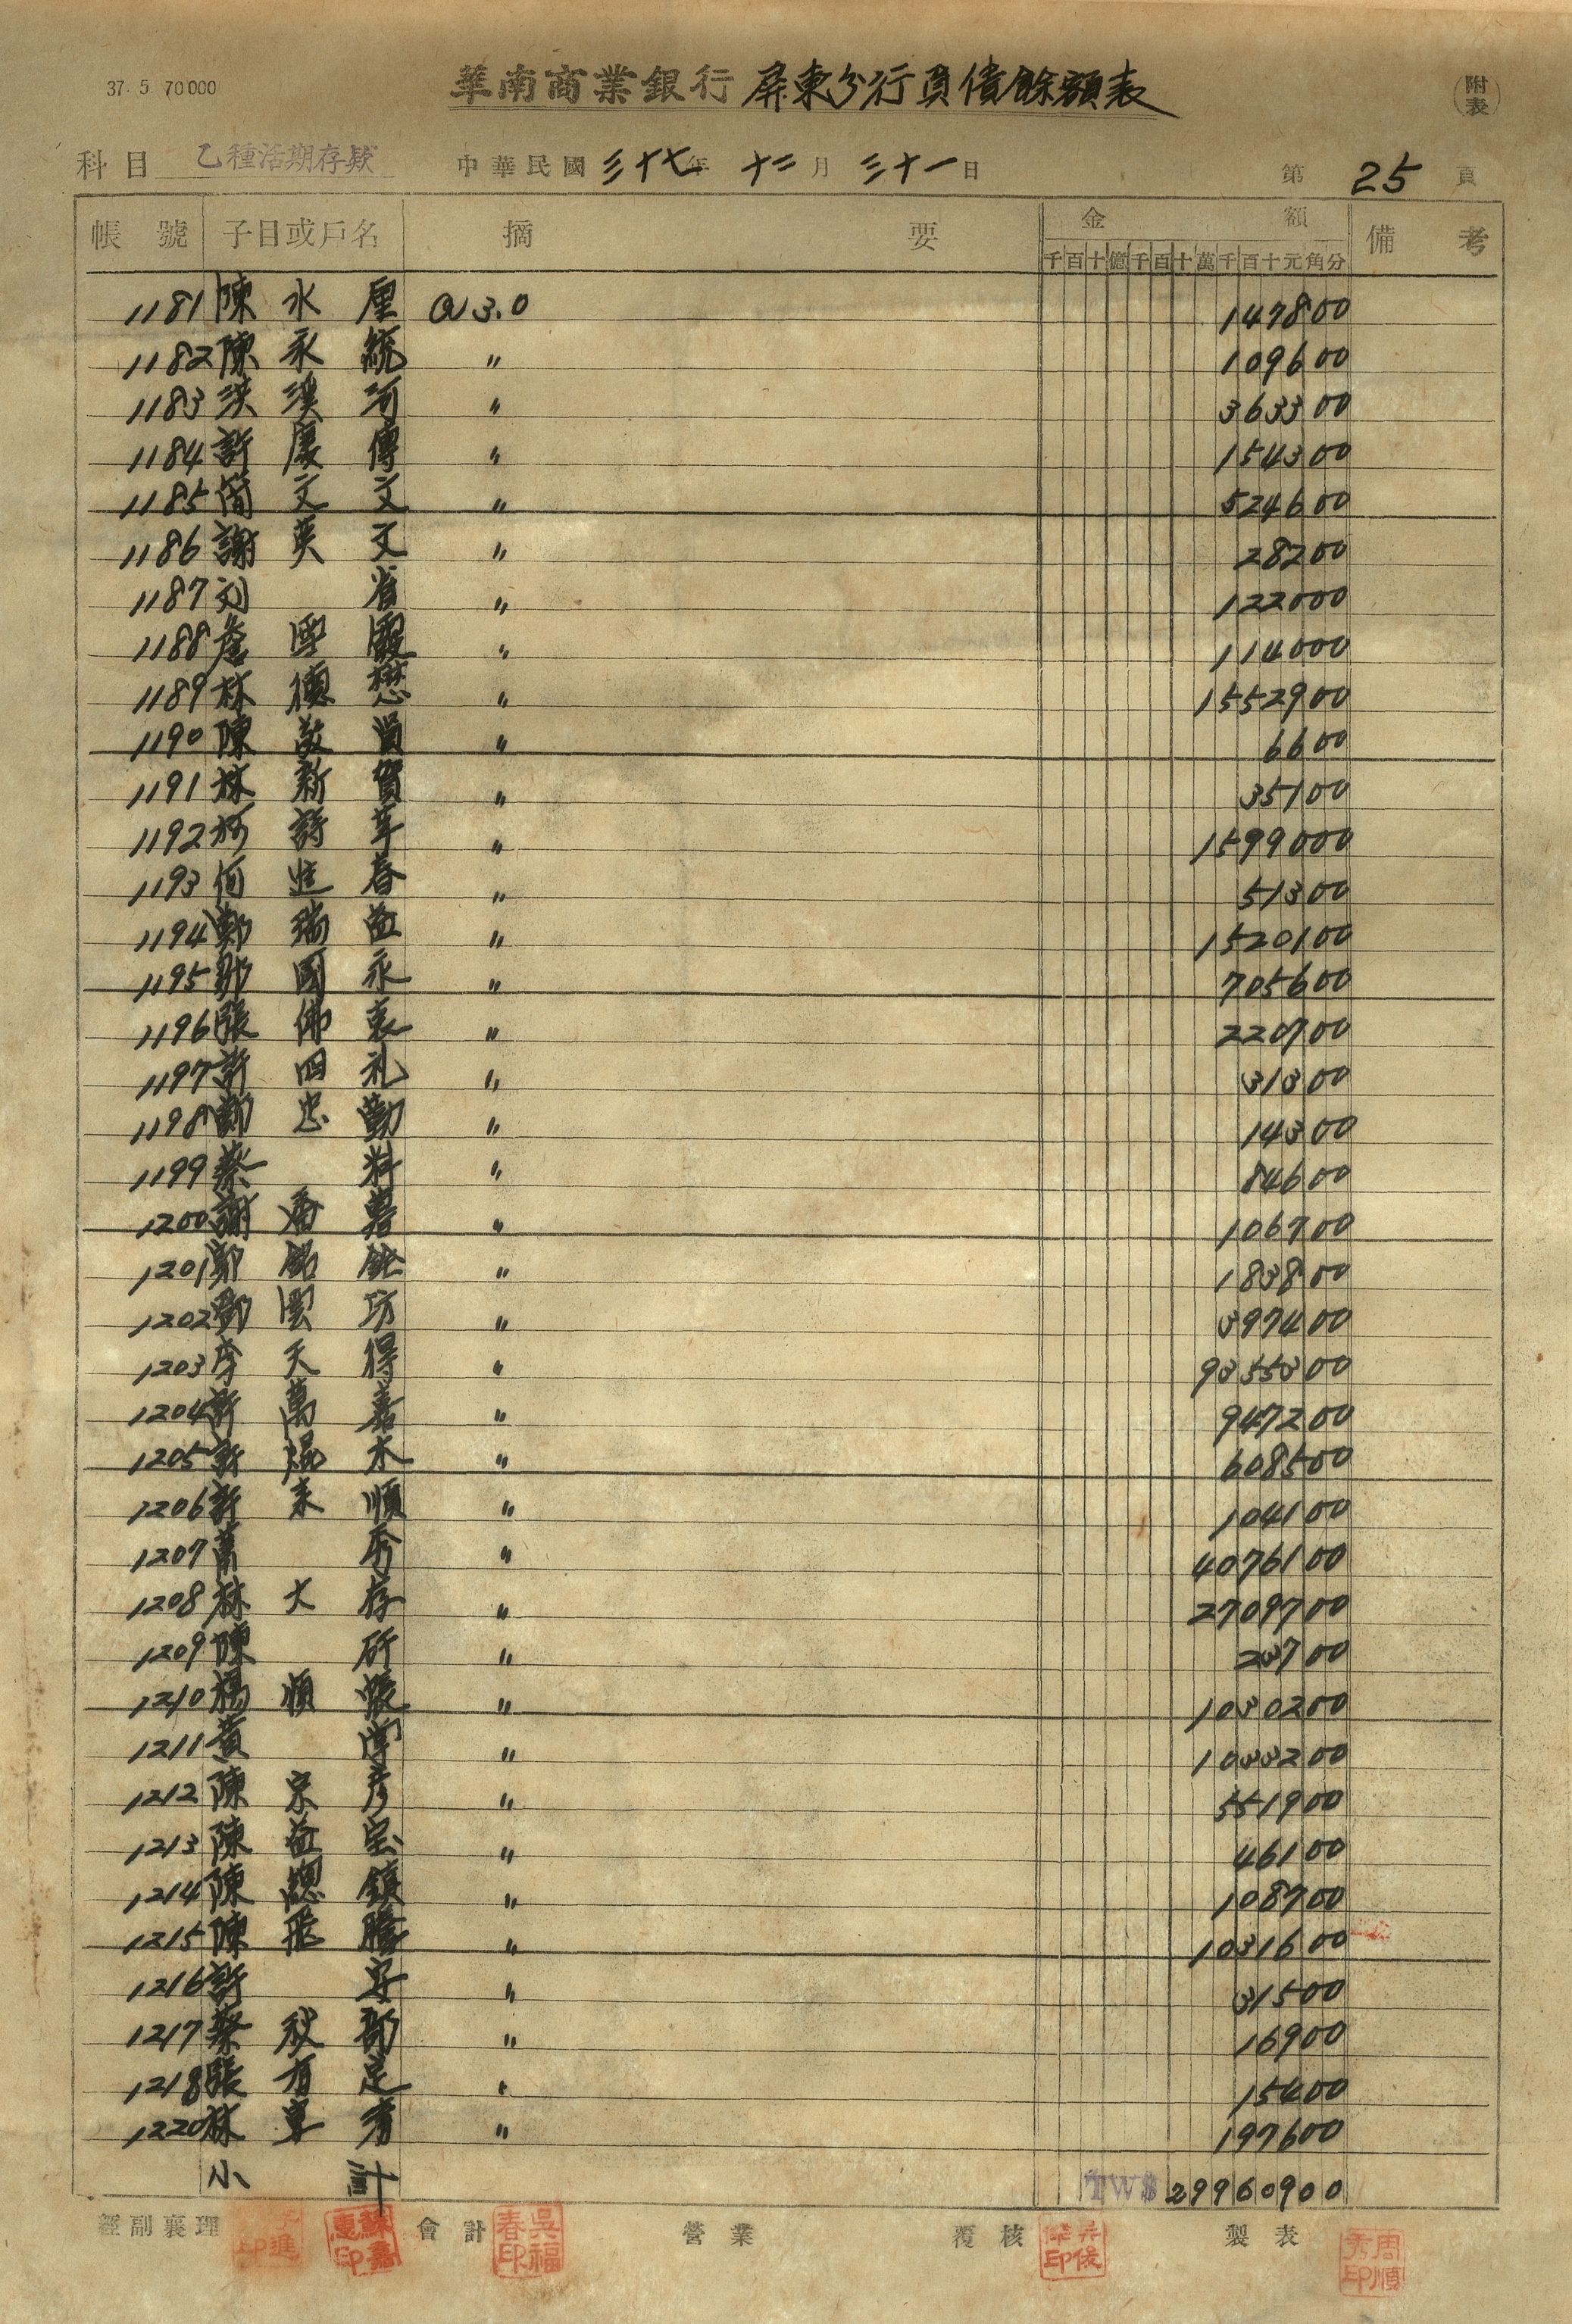 37. 5 70000
華南商業銀行 屏東分行負債餘額表
附表
科目 乙種活期存款 中華民國三十七年 十二月 三十一日 第 25 頁
帳號 子目或戶名 摘要 金額 備考
千百十億千百十萬千百十元角分
1181 陳水厘 @3.0 147800
1182 陳永統 〃 109600
1183 洪溪河 〃 363300
1184 許慶傳 〃 154300
1185 簡文文 〃 524600
1186 謝英文 〃 28200
1187 刘省 〃 122000
1188 詹 〃 114000
1189 林德懋 〃 1552900
1190 陳 〃 6600
1191 林新賀 〃 35100
1192 柯詩 〃 1599000
1193 何進春 〃 51300
1194 鄭瑞益 〃 1520100
1195 國永 〃 705600
1196 張佛 〃 220700
1197 許四礼 〃 31300
1198 鄭忠勤 〃 14300
1199 蔡料 〃 84600
1200 謝番 〃 106700
1201 鄭銘 〃 183800
1202 鄭 坊 〃 397400
1203 李天得 〃 9355300
1204 許萬嘉 〃 947200
1205 許焜木 〃 608500
1206 許來順 〃 104100
1207 萬秀 〃 4076100
1208 林大存 〃 2709700
1209 陳 〃 23700
1210 楊順 〃 1030200
1211 黃 〃 1033200
1212 陳宗彦 〃 551900
1213 陳益宝 〃 46100
1214 陳總鎮 〃 108700
1215 陳飛騰 〃 1031600
1216 許 〃 31500
1217 蔡秋郎 〃 16900
1218 張有足 〃 15400
1220 林 〃 197600
小計 TW$ 29960900
經副襄理 會計 營業 覆核 製表
蘇嘉惠印
吳福春印
周順秀印